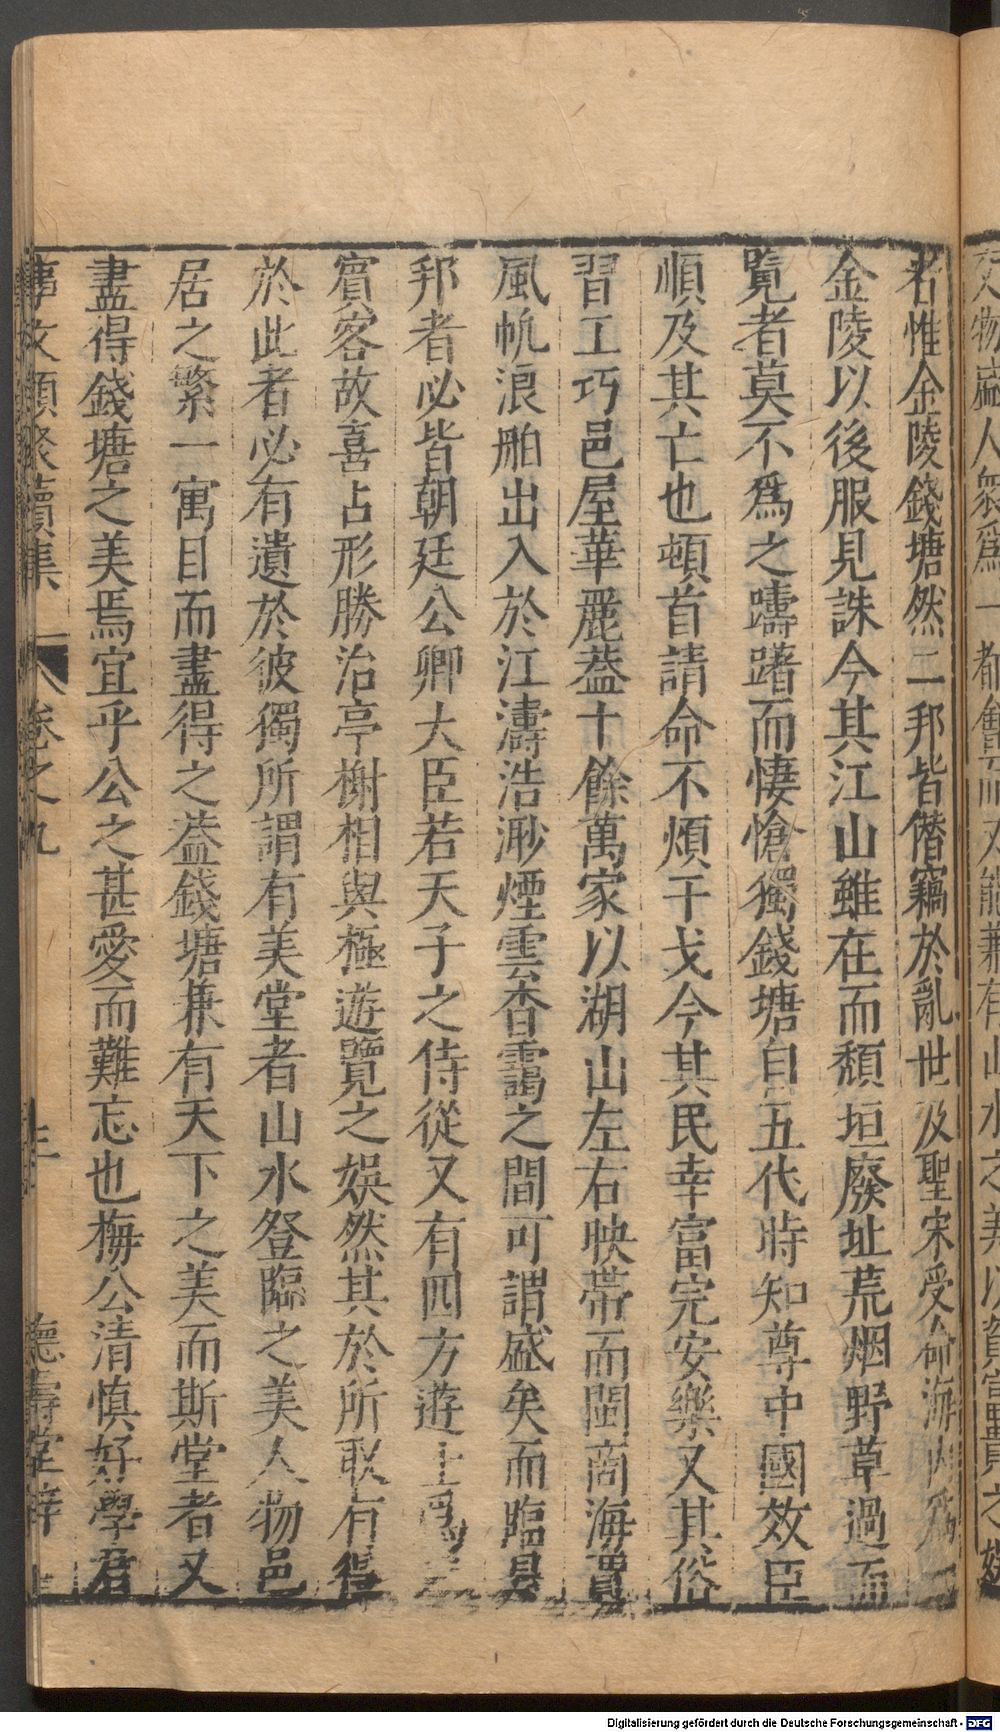 文物盛人衆爲一都會而又能兼有山水之美以資富貴之娛
者惟金陵錢塘然二邦皆僭竊於亂世及聖宋受命海内爲一
金陵以後服見誅今其江山雖在而頽垣廢址荒烟野草過而
覽者莫不爲之躊躇而悽愴獨錢塘自五代時知尊中國效臣
順及其亡也頓首請命不煩干戈今其民幸富完安樂又其俗
習工巧邑屋華麗葢十餘萬家以湖山左右映帶而閩商海賈
風帆浪舶出入於江濤浩渺煙雲杳靄之間可謂盛矣而臨是
邦者必皆朝廷公卿大臣若天子之侍從又有四方遊士爲之
賓客故喜占形勝治亭榭相與極遊覽之娛然其於所取有得
於此者必有遺於彼獨所謂有美堂者山水登臨之美人物邑
居之繁一寓目而盡得之葢錢塘兼有天下之美而斯堂者又
盡得錢塘之美焉宜乎公之甚愛而難忘也梅公清慎好學君
事文類聚續集 卷之九 三 德壽堂梓
Digitalisierung gefördert durch die Deutsche Forschungsgemeinschaft - DFG